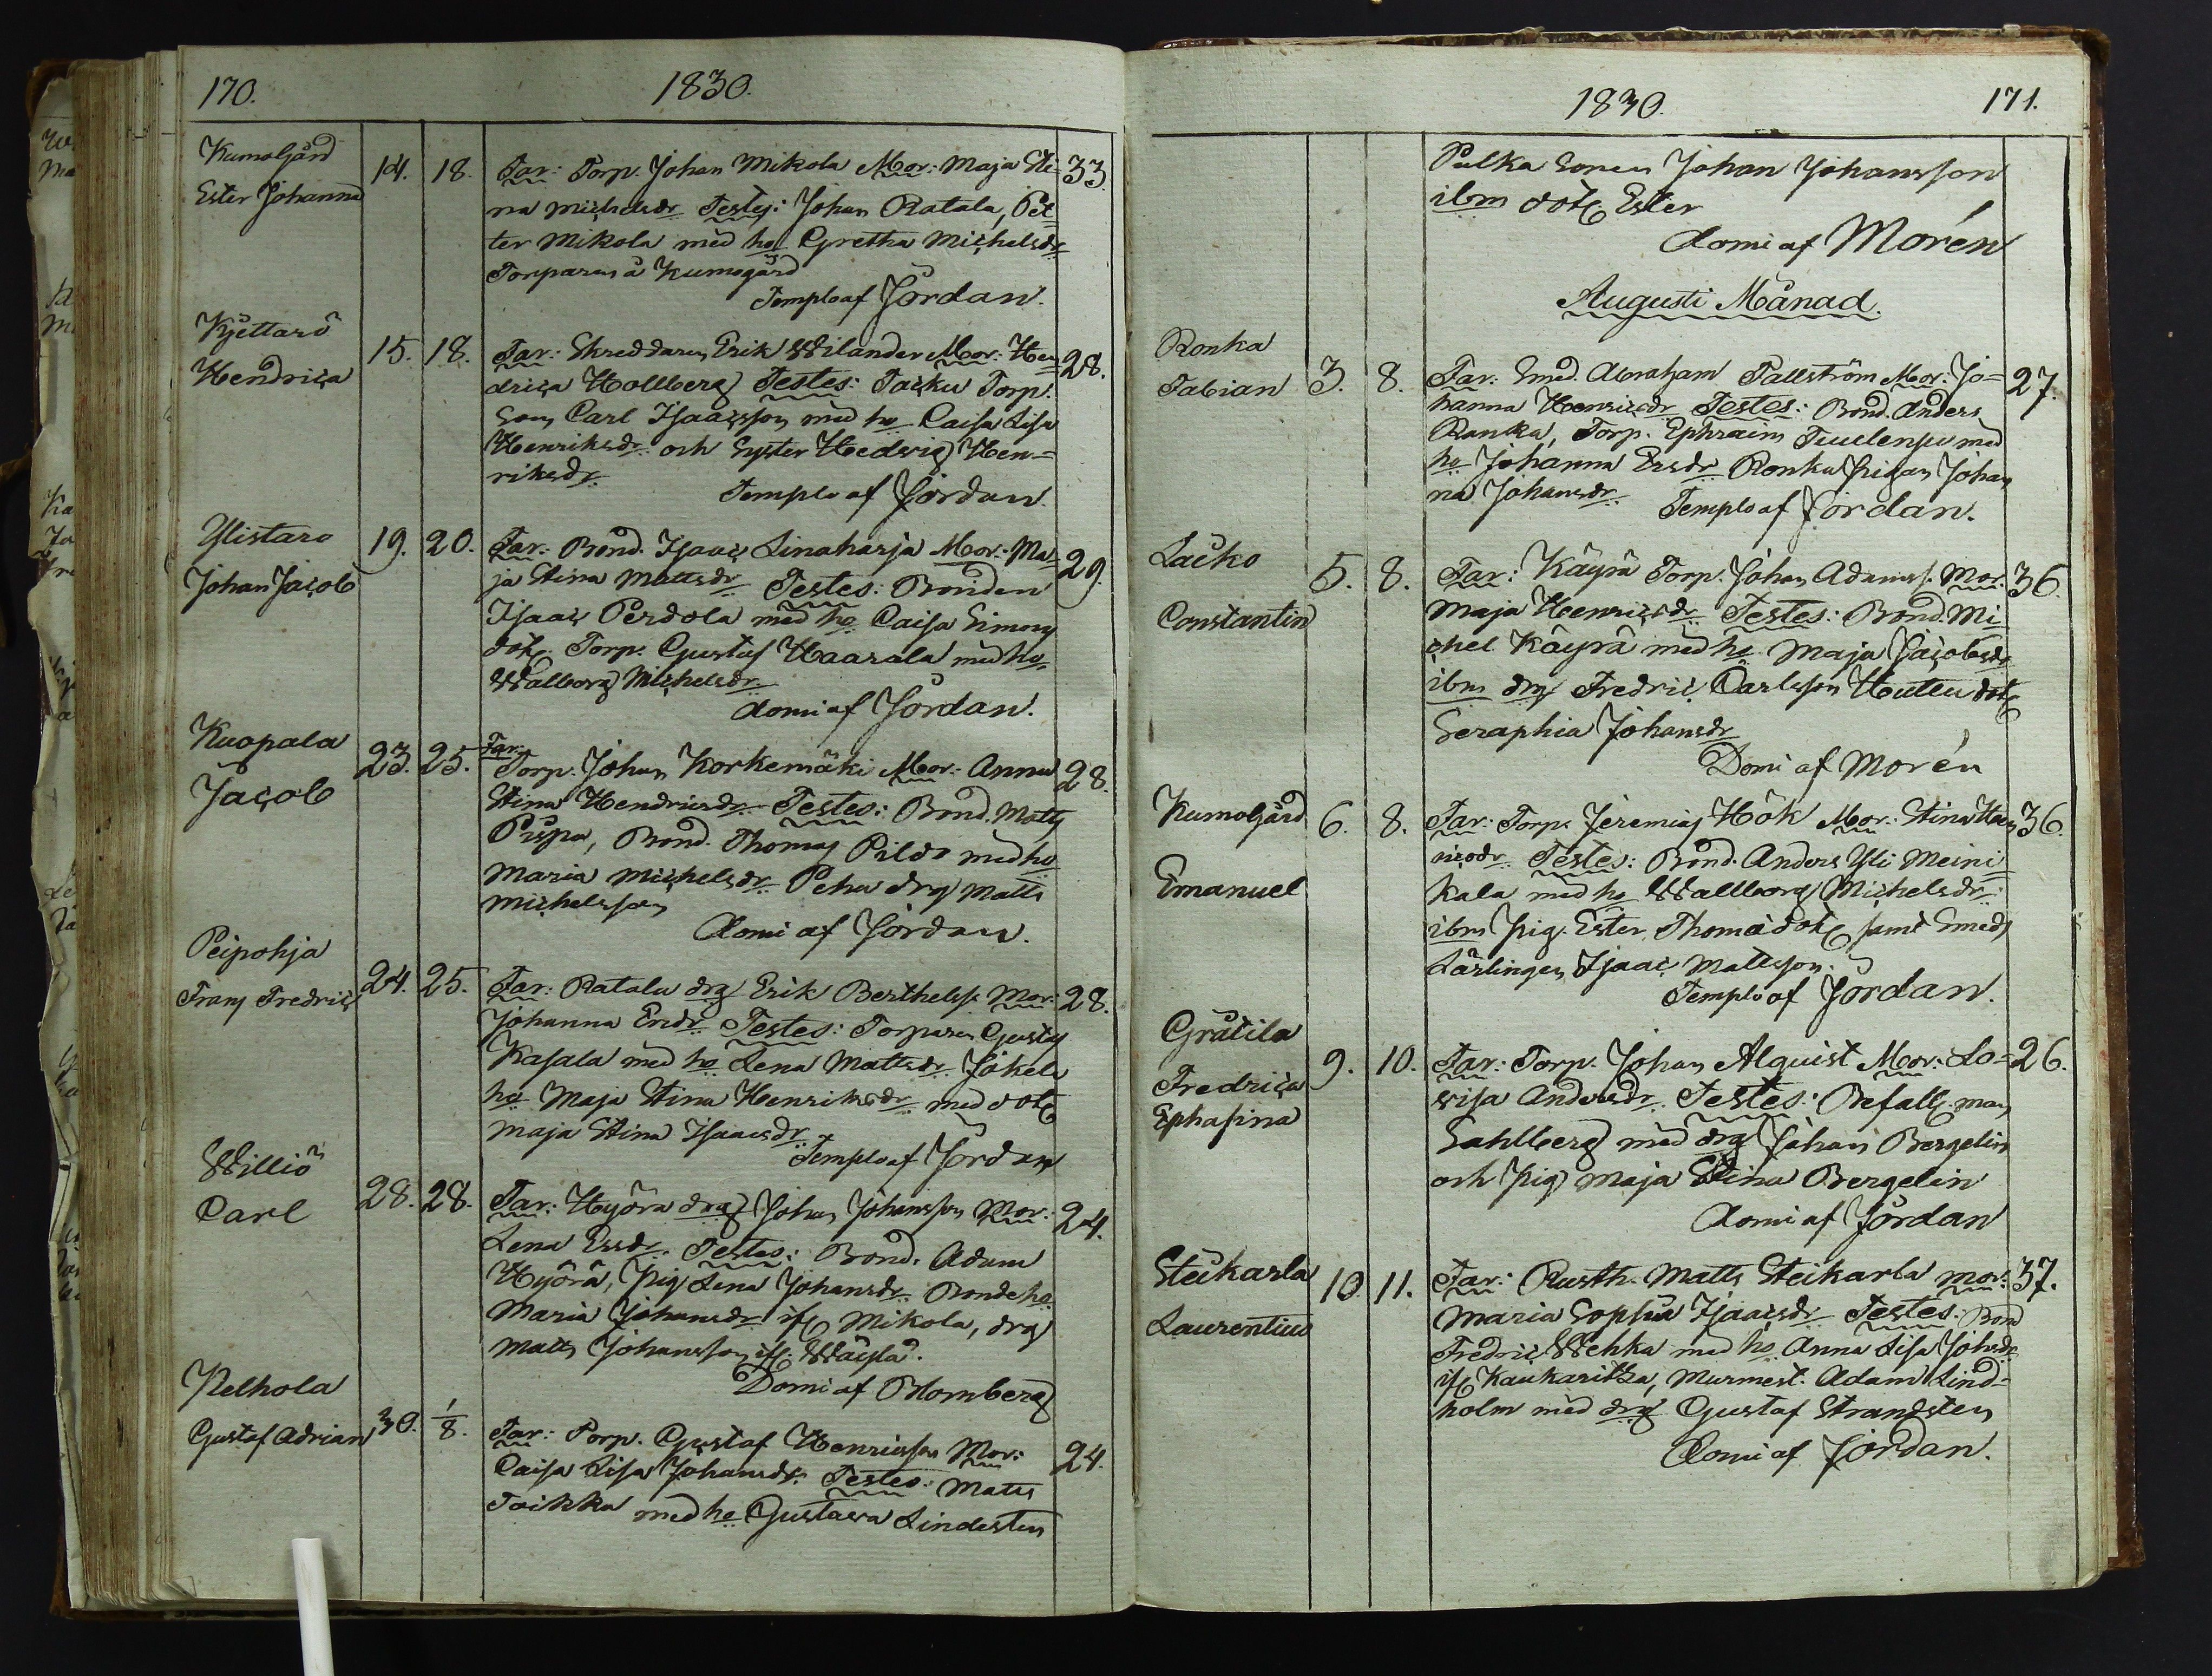 170.
1830.
Kumogård
Ester Johanna
14. 18.
Far: Torp. Johan Mikola Mor: Maja Sti- 33.
na Michelsdr Testes: Johan Ratala, Pet-
ter Mikola med ho Gretha Michelsdr
Torparen å Kumogård
Templo af Jordan.
Kjettarö
Hendrica
15. 18.
Far: Skreddaren Erik Wilander Mor: Hen 28.
drica Hollberg Testes: Torp.
Son Carl Isaacsson med ho Caisa Lisa
Henriksdr och Syster Hedvig Hen-
riksdr.
Templo af Jordan.
Ylistaro
Johan Jacob
19. 20.
Far: Bond. Isaac Linaharja Mor: Ma- 29.
ja Stina Mattsdr Testes: Bonden
Isaac Perdola med ho Caisa Simons
dott. Torp. Gustaf Haarala med ho
Walborg Michelsdr
domi af Jordan.
Kuopala
Jacob
23. 25.
Far:
Torp. Johan Korkemäki Mor: Anna 28.
Stina Hendricsdr Testes: Bond. Matts
Pispa, Bond. Thomas Pildo med ho
Maria Michelsdr Peha drg Matts
Michelsson
domi af Jordan.
Peipohja
Frans Fredric
24. 25.
Far: Ratala drg Erik Berthelss. Mor: 28.
Johanna Ersdr Testes: Torparen Gustaf
Kasala med ho Lena Mattsdr Jokela
ho Maja Stina Henriksdr med dott
Maja Stina Isaacsdr
Templo af Jordan
Williö
Carl
28. 28.
Far: Hyörä drg Johan Johansson Mor: 24.
Lena Ersdr. Testes: Bond. Adam
Hyörä, pig Lena Johansdr Bonde ho
Maria Johansdr if Mikola, drg
Matts Johansson if
Domi af Blomberg
Pelhola
Gustaf Adrian
30. 1/8.
Far: Torp. Gustaf Henricsson Mor: 24.
Caisa Lisa Johansdr. Testes: Matts
Toikka med ho Gustava Lindesten
1830.
171.
Pulka Sonen Johan Johansson
ibm dott Ester
domi af Morén
Augusti Månad.
Ronka
Fabian
3. 8.
Far: Smed. Abraham Pallström Mor: Jo- 27.
hanna Henricsdr Testes: Bond. Anders
Ronka, Torp. Ephraim med
ho Johanna Ersdr Ronka pigan Johan
na Johansdr
Templo af Jordan.
Lacko
Constantin
5. 8.
Far: Käyrä Torp. Johan Adamss. Mor. 36.
Maja Henricsdr Testes: Bond. Mi
chel Käyrä med ho Maja Jacobsdr
ibm drg Fredric Carlsson Hutku dott
Seraphia Johansdr
Domi af Morén
Kumogård
Emanuel
6. 8.
Far: Torp. Jeremias Hök Mor: Stina Hen 36.
ricsdr Testes: Bond. Anders Yli Meini
kala med ho Wallborg Michelsdr
ibm pig. Ester Thomædott samt Smeds
Lärlingen Isaac Mattsson.
Templo af Jordan.
Gråtila
Fredrica
Ephasina
9. 10.
Far: Torp. Johan Alquist Mor: Lo- 26.
visa Andersdr. Testes: Befall. man
Sahlberg med drg Johan Bergelin
och pig Maja Stina Bergelin
domi af Jordan
Steikarla
Laurentius
10. 11.
Far: Rusth. Matts Steikarla Mor: 37.
Maria Sophia Isaacsdr Testes: Bond
Fredric Wehka med ho Anna Lisa Johsdr
if Kaukaritza, Murmest. Adam Lind-
holm med drg Gustaf Strandsten
Domi af Jordan.